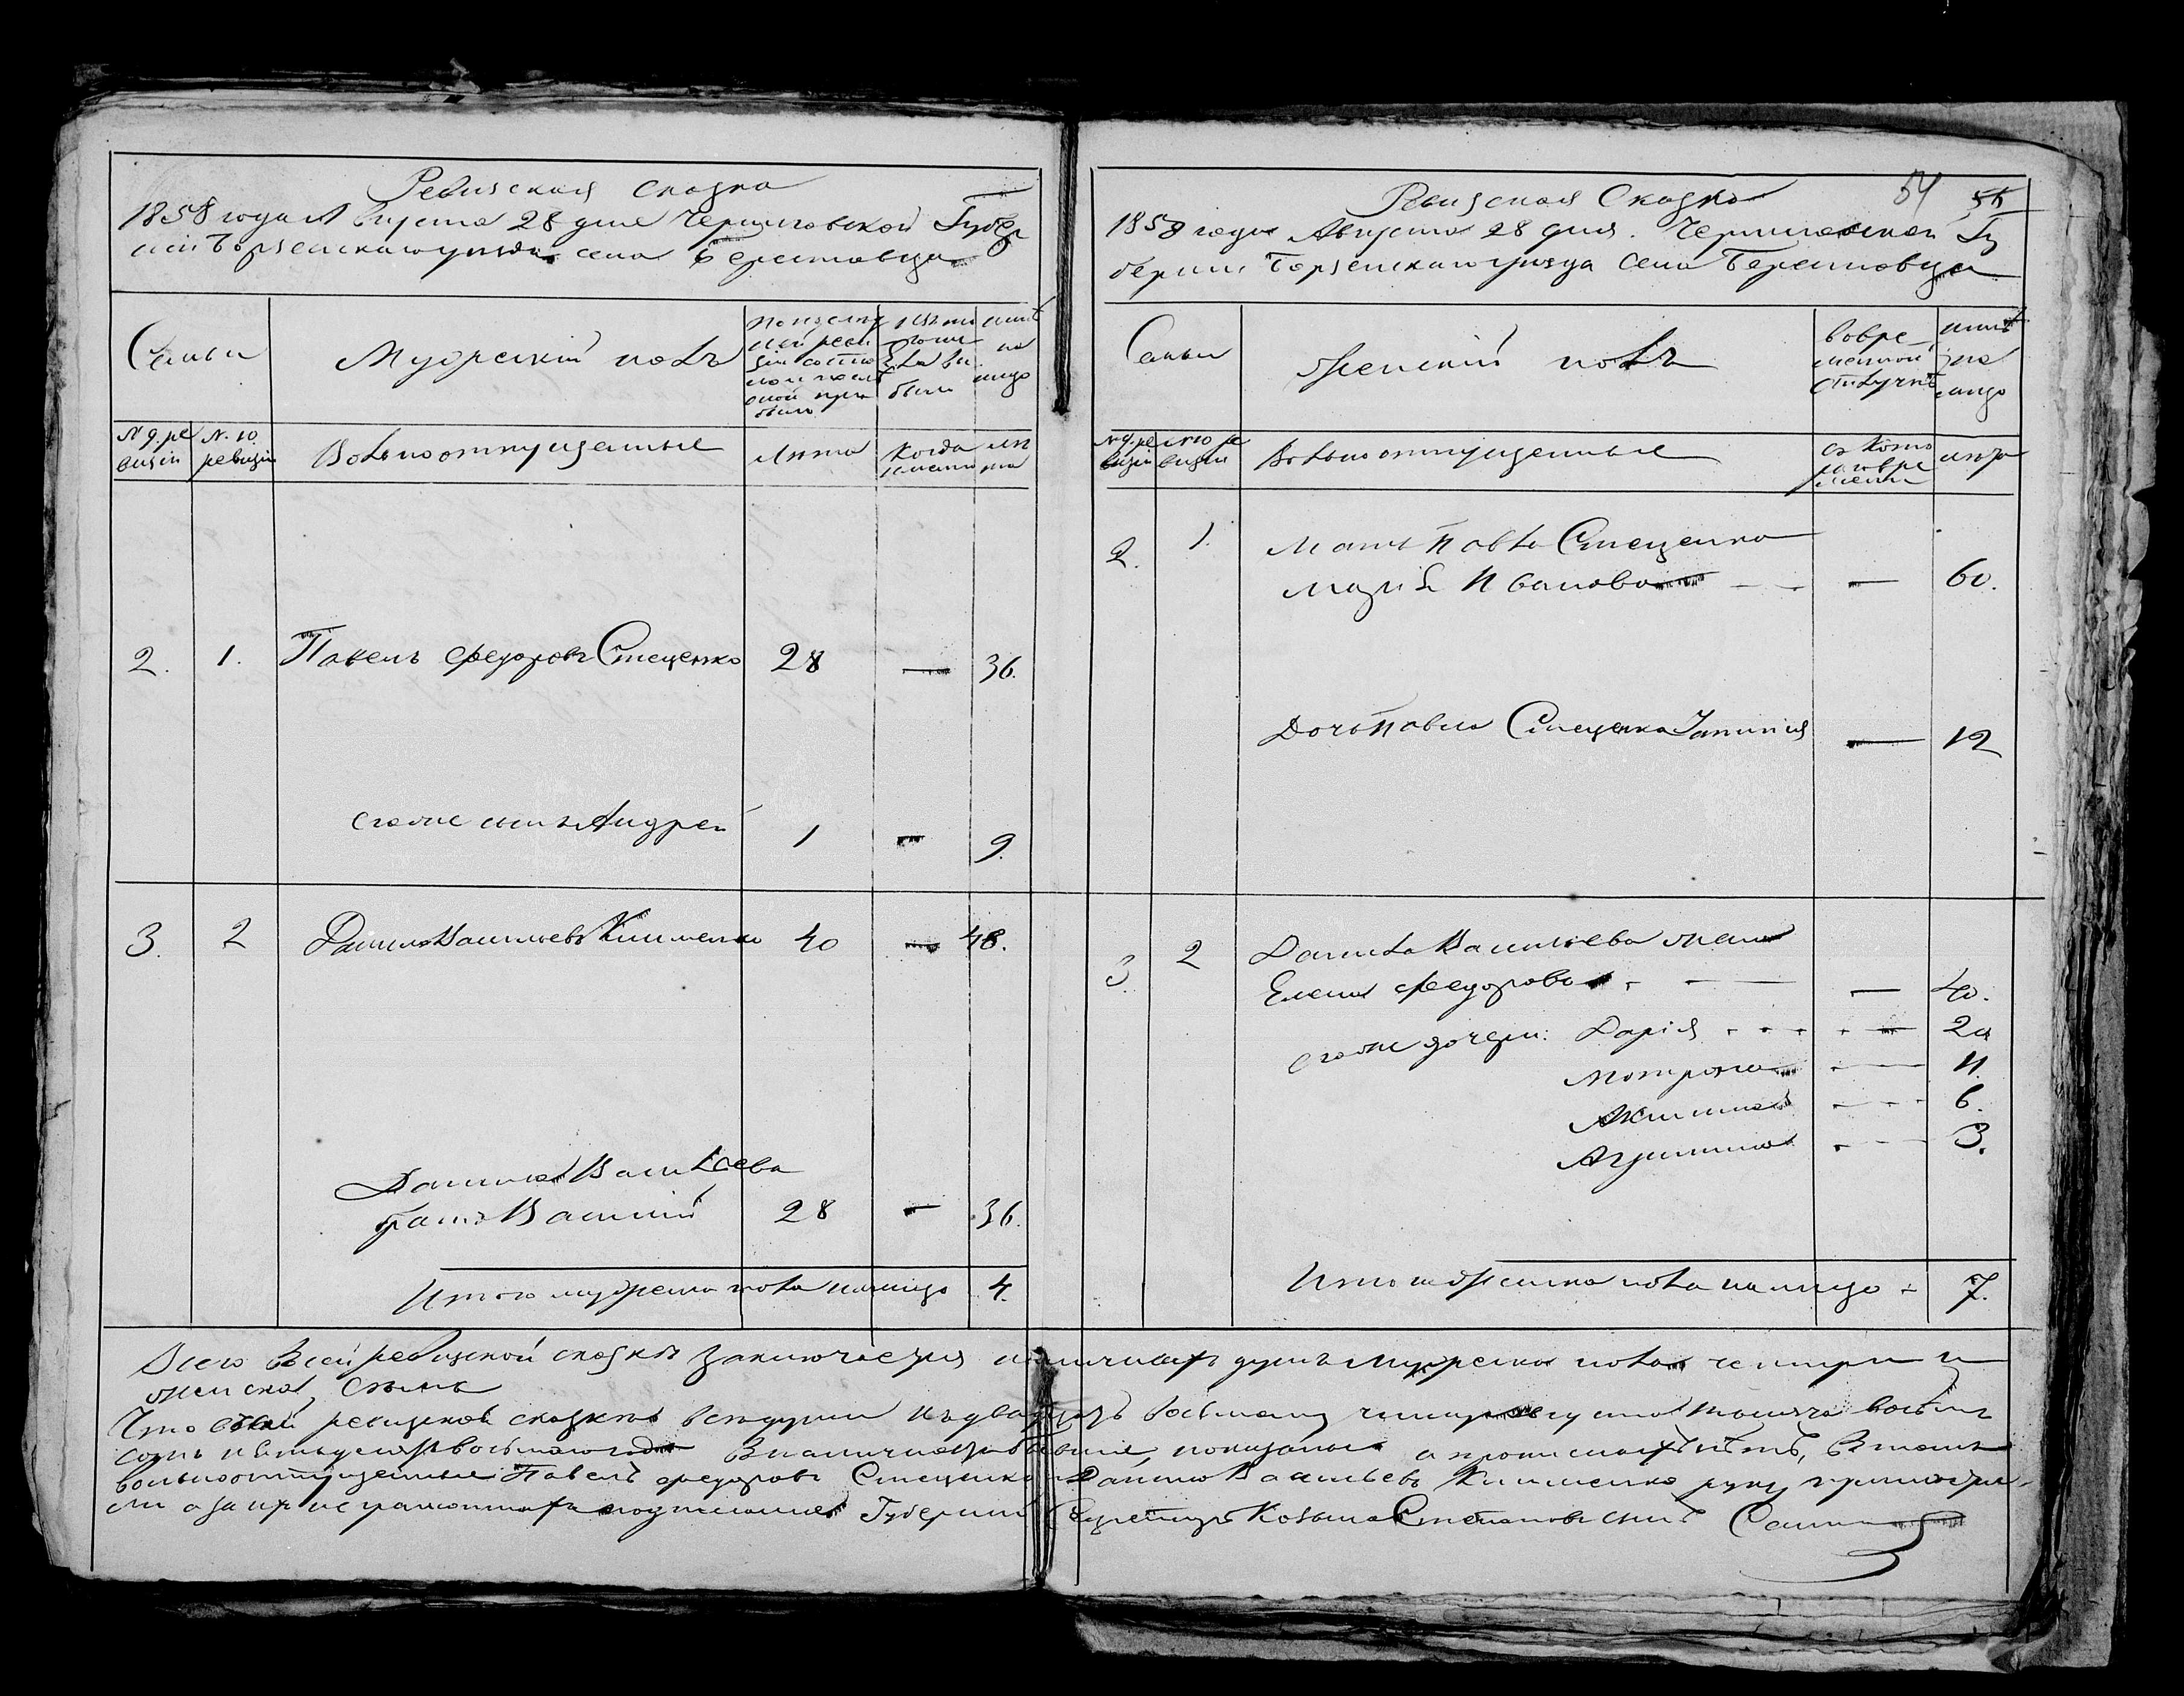 Ревизская сказка
1858 года Августа 28 дня Черниговской Губер
нии Борзенскаго уезда села Берестовца
Семьи
Мужескій полъ
По последней ревизіи состояло и после оной прибыло
Изъ того числа выбыло
ныне на лицо
№ 9. ре
визіи
№. 10.
ревизіи
Вольноотпущенные
Лета
Когда именно
лета
2.
1.
Павелъ Федоровъ Стеценко
28
—
36.
его же сынъ Андрей
1
—
9.
3.
2
Данило Васильевъ Клименко
40
—
48.
Данила Васильева
братъ Василий
28
—
36.
Итого мужеска пола налицо
4.
Ревизская Сказка
54 55
1858 года Августа 28 дня. Черниговской Гу
берніи Борзенскаго уезда села Берестовца
Семьи
Женскій полъ
Во вре
менной
отлучкѣ
ныне
на
лицо
№ 9. ре
визіи
№ 10 ре
визіи
Вольноотпущенные
Съ кото
раго вре
мени
лета
2.
1.
Мать Павла Стеценка
Марія Иванова
—
60.
Дочь Павла Стеценка
—
12
3.
2
Данила Васильева жена
Елена Федорова
—
40.
его же дочери: Дарія
—
Мотрона
11.
Акилина
6.
3.
Итого женска пола на лицо
7.
Всего въ сей ревизской сказкѣ заключается наличныхъ душъ мужеска пола четыри и
женска, семь
Что въ сей ревизской сказкѣ все души къ двадцать восьмому числу августа тысяча восемь
сотъ пятьдесятъ восьмого года въ наличности бывшіе, показаны а прописныхъ нетъ, въ томъ
вольноотпущенные Павелъ Федоровъ Стеценко и Данило Васильевъ Клименко руку приложи-
ли а за ихъ неграмотныхъ подписался Губернскій Секретарь Козьма